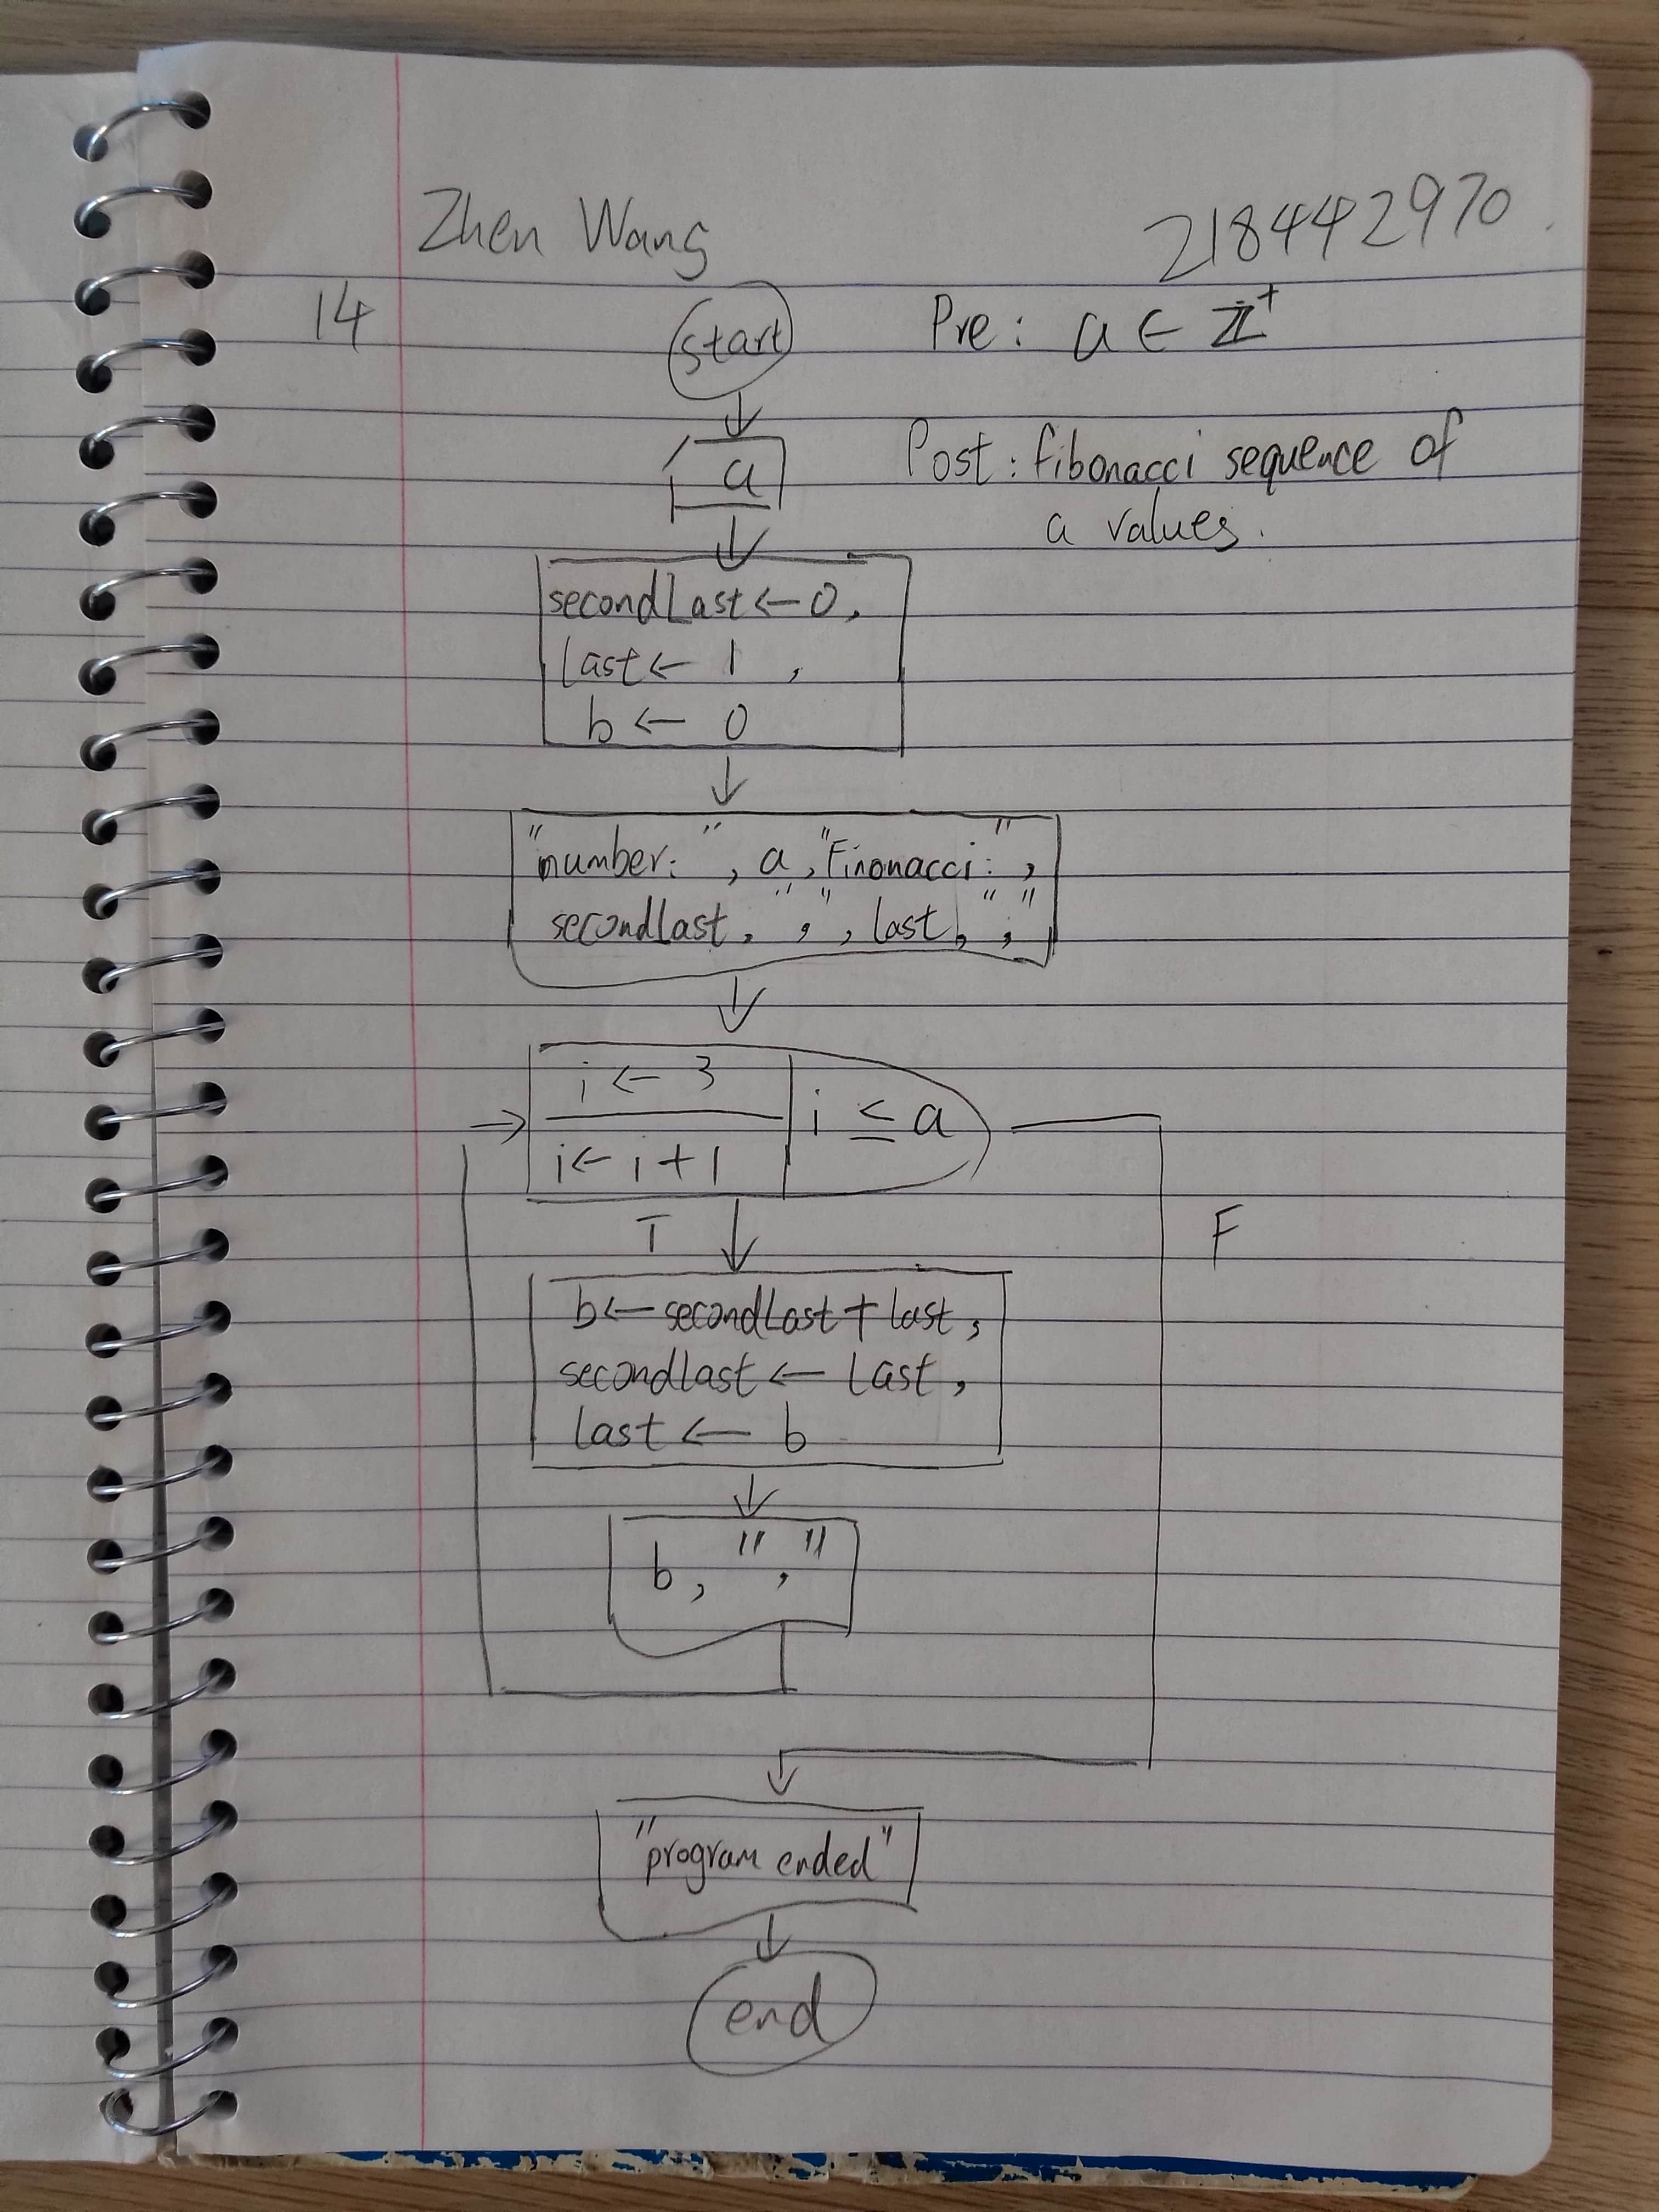 Zhen Wang 218442970
14 start Pre: a ∈ ℤ⁺
a Post: fibonacci sequence of
a values.
secondLast ← 0,
last ← 1 ,
b ← 0
"number: ", a, "Finonacci: ",
secondlast, ",", last, ","
i ← 3
i ≤ a
i ← i + 1
T F
b ← secondLast + last,
secondlast ← last,
last ← b
b, ","
"program ended"
end